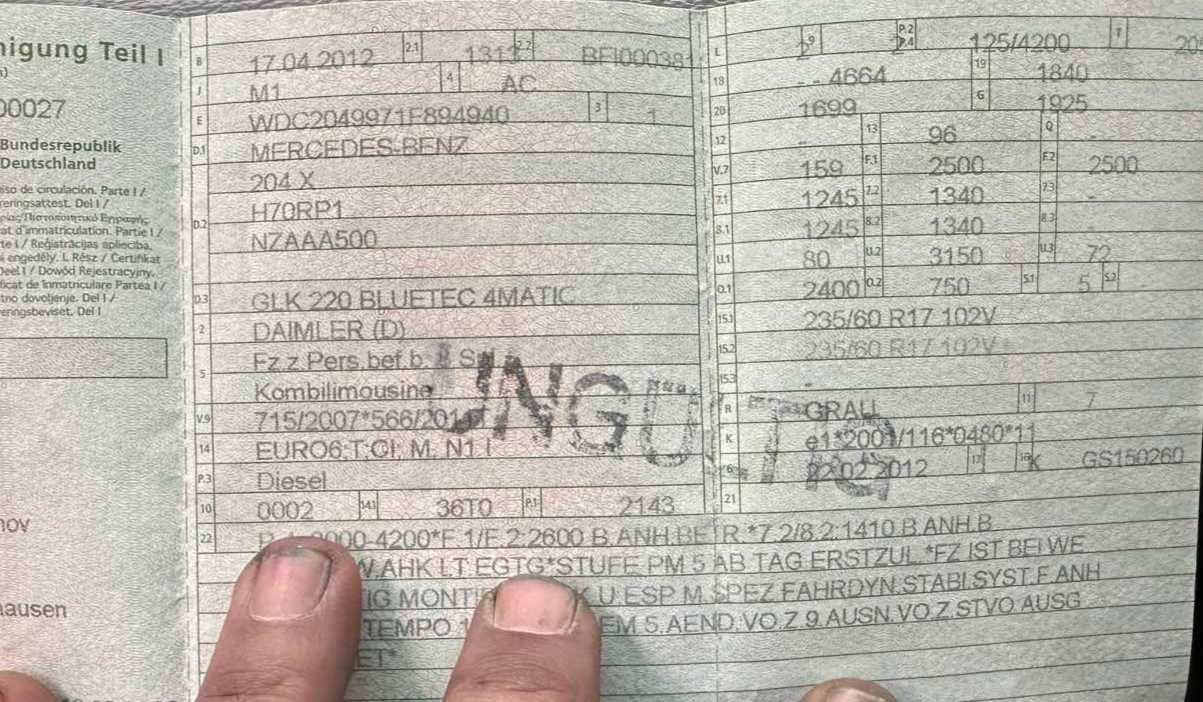 nigung Teil I
00027
Bundesrepublik
Deutschland
so de circulación. Parte I /
reringsattest. Del I /
at d'immatriculation. Partie I /
te I / Reģistrācijas apliecība.
i engedély. I. Rész / Certifikat
Deel I / Dowód Rejestracyjny.
ficat de înmatriculare Partea I /
tno dovoljenje. Del I /
eringsbeviset. Del I
nov
hausen
B 17.04.2012 2.1 1313 2.2 BFI000381
J M1 4 AC
E WDC2049971F894940 3 1
D.1 MERCEDES-BENZ
204 X
D.2 H70RP1
NZAAA500
D.3 GLK 220 BLUETEC 4MATIC
2 DAIMLER (D)
5 Fz.z.Pers.bef.b. 8 S
Kombilimousine
V.9 715/2007*566/201
14 EURO6;T;CI; M, N1 I
P.3 Diesel
10 0002 14.1 36T0 P.1 2143
L 9 P.2 P.4 125/4200 T 20
18 4664 19 1840
20 1699 G 1925
12 - 13 96 Q -
V.7 159 F.1 2500 F.2 2500
7.1 1245 7.2 1340 7.3 -
8.1 1245 8.2 1340 8.3 -
U.1 80 U.2 3150 U.3 72
O.1 2400 O.2 750 S.1 5 S.2
15.1 235/60 R17 102V
15.2 235/60 R17 102V
15.3 -
R GRAU 11 7
K e1*2001/116*0480*11
6 22.02.2012 17 16 GS150260
21
UNGÜLTIG
22 000-4200*F.1/F.2:2600 B.ANH.BETR.*7.2/8.2:1410 B.ANH.B
W.AHK LT.EGTG*STUFE PM 5 AB TAG ERSTZUL.*FZ IST BEI WE
TIG MONTI K U.ESP M.SPEZ.FAHRDYN.STABI.SYST.F.ANH
TEMPO 1 EM 5.AEND.VO.Z.9.AUSN.VO.Z.STVO AUSG
ET*